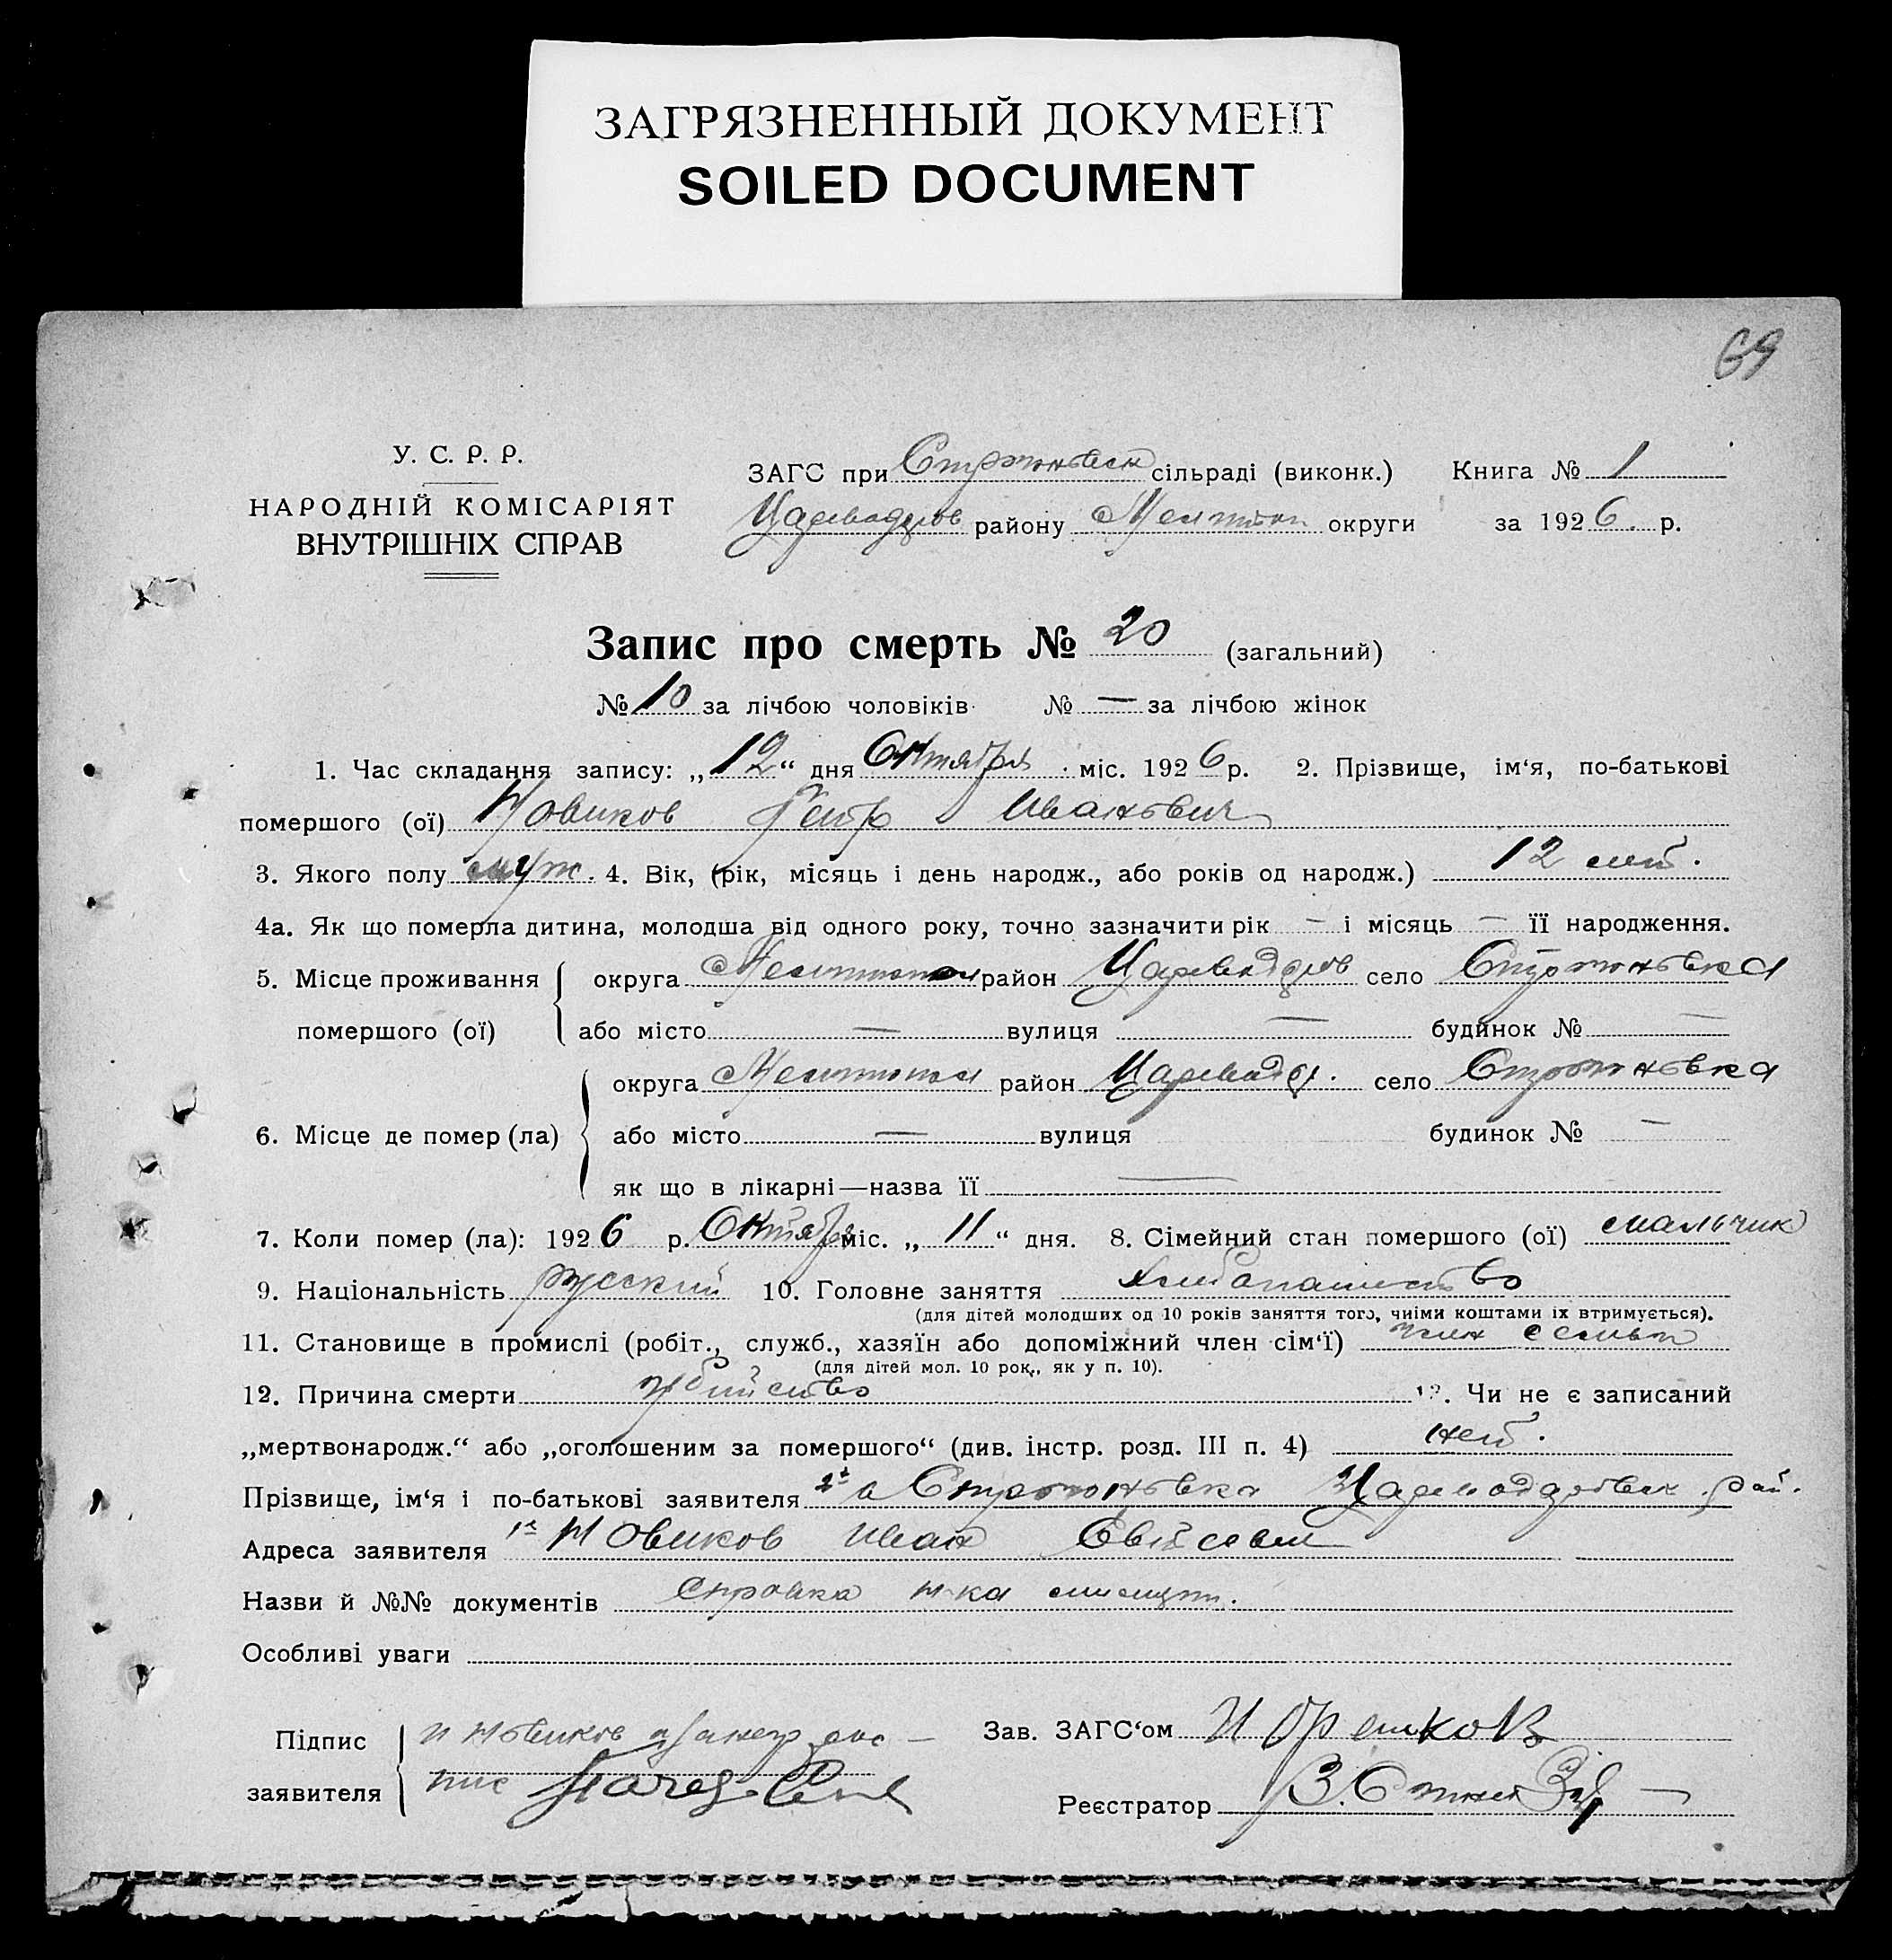 ЗАГРЯЗНЕННЫЙ ДОКУМЕНТ
SOILED DOCUMENT
69
У. С. Р. Р.
НАРОДНІЙ КОМІСАРІЯТ
ВНУТРІШНІХ СПРАВ
ЗАГС при сільраді (виконк.) Книга № 1
району округи за 1926 р.
Запис про смерть № 20 (загальний)
№ 10 за лічбою чоловіків № — за лічбою жінок
1. Час складання запису: „12“ дня Октября міс. 1926 р. 2. Прізвище, ім‘я, по-батькові
помершого (ої) Новиков Петр Иванович
3. Якого полу муж. 4. Вік, (рік, місяць і день народж., або років од народж.) 12 лет.
4а. Як що померла дитина, молодша від одного року, точно зазначити рік — і місяць — її народження.
5. Місце проживання округа Мелитополь район село
помершого (ої) або місто — вулиця — будинок № —
округа Мелитополь район село
6. Місце де помер (ла) або місто — вулиця будинок № —
як що в лікарні—назва її —
7. Коли помер (ла): 1926 р. Октября міс. „11“ дня. 8. Сімейний стан помершого (ої) мальчик
9. Національність русский 10. Головне заняття хлебопашество
(для дітей молодших од 10 років заняття того, чиїми коштами їх втримується).
11. Становище в промислі (робіт., служб., хазяїн або допоміжний член сім‘ї) член семьи
(для дітей мол. 10 рок., як у п. 10).
12. Причина смерти убийство 13. Чи не є записаний
„мертвонародж.“ або „оголошеним за помершого“ (див. інстр. розд. III п. 4) нет.
Прізвище, ім‘я і по-батькові заявителя
Адреса заявителя Новиков Иван
Назви й №№ документів справка
Особливі уваги
Підпис
заявителя
Зав. ЗАГС‘ом
Реєстратор